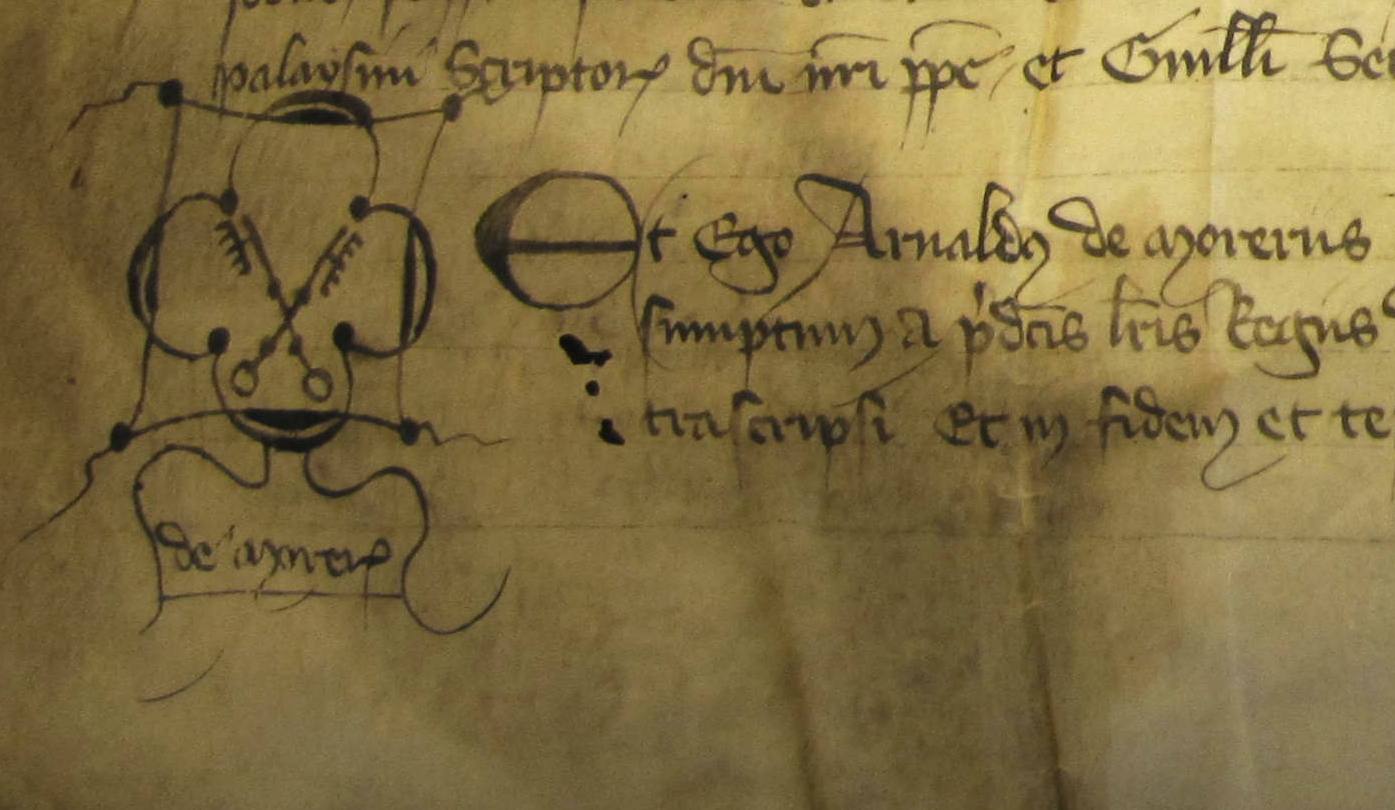 palaysini Scriptor dni nri ppe et Guilli
Et Ego Arnaldus de Moreriis
sumptum a pdcis lris Regiis
trascripsi Et in fidem et te
de Morer